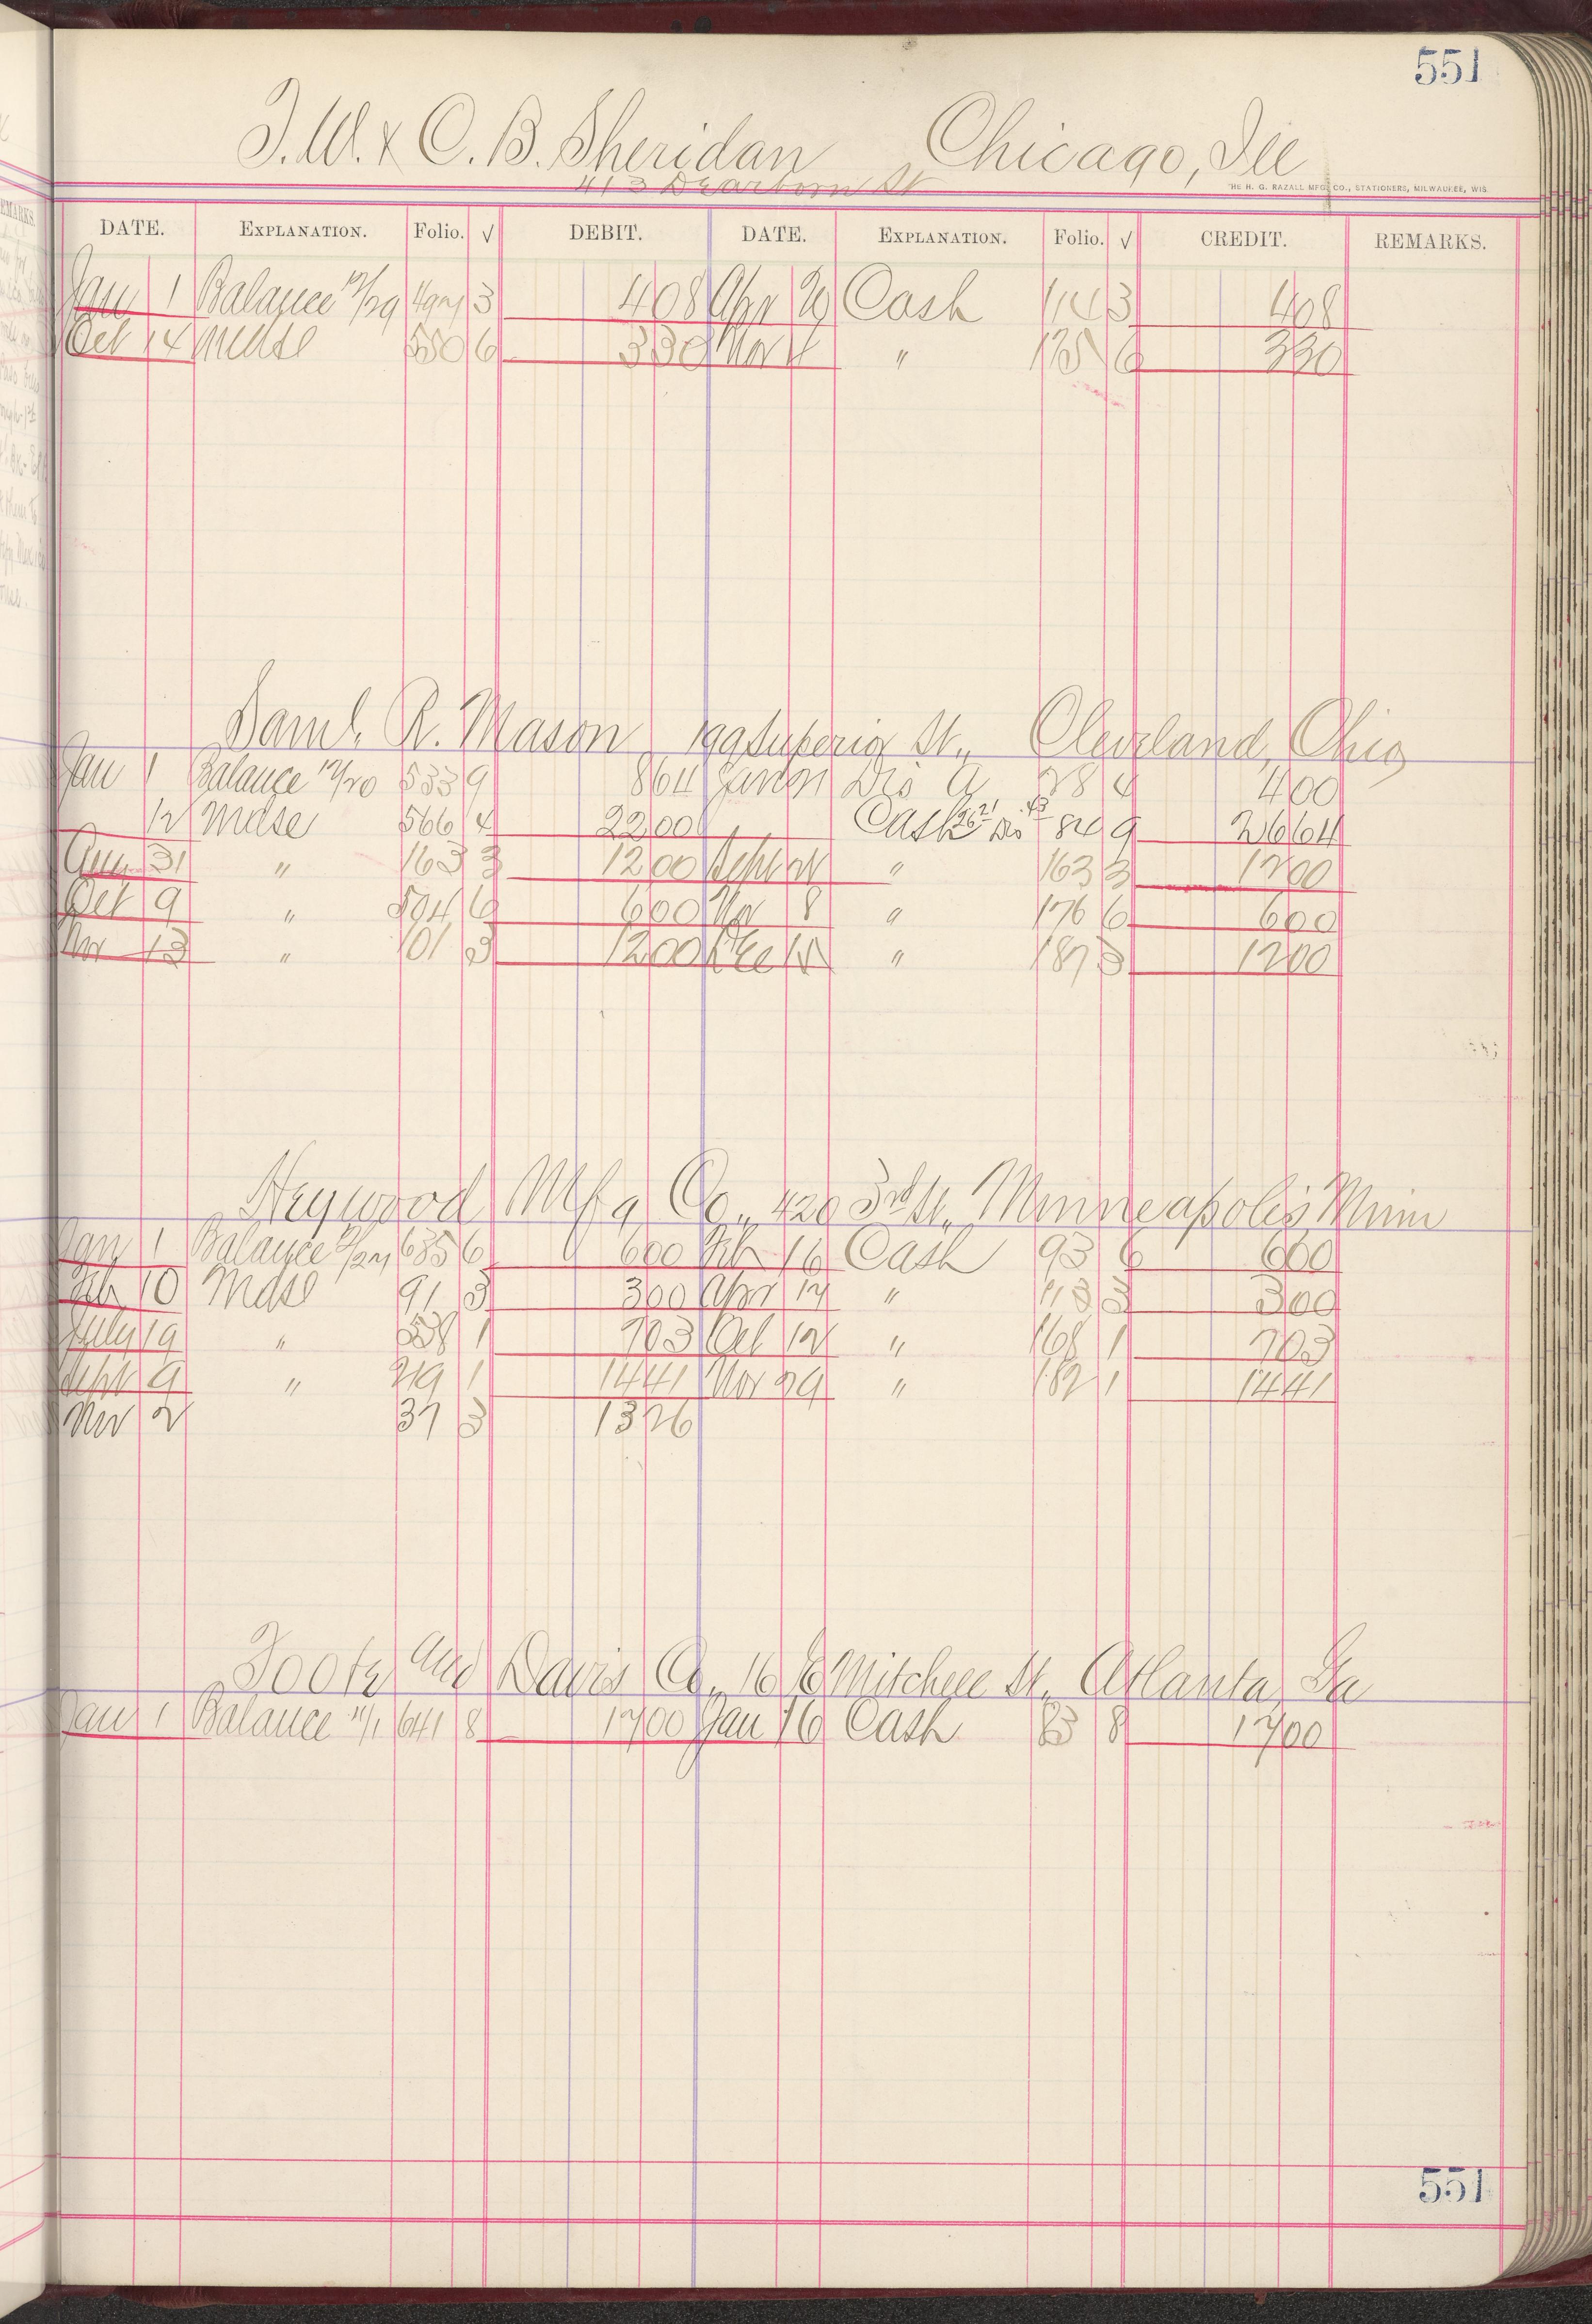 551
T. W. & C. B. Sheridan Chicago, Ill
413 Dearborn St
THE H. G. RAZALL MFG. CO., STATIONERS, MILWAUKEE, WIS.
DATE. EXPLANATION. Folio. √ DEBIT. DATE. EXPLANATION. Folio. √ CREDIT. REMARKS.
Jan 1 Balance 12/29 3 408 Apr Cash 114 3 408
Oct 14 Mdse 550 6 330 Nov " 175 6 330
Saml. R. Mason 199 Superior St., Cleveland, Ohio
Jan 1 Balance 12/20 533 9 864 Dis 4 400
12 Mdse 566 4 2200 Cash Dis 84 9 2664
Aug 31 " 163 3 1200 Sept " 163 3 1200
Oct 9 " 6 600 Nov 8 " 176 6 600
Nov 13 " 101 3 1200 Dec " 187 3 1200
Heywood Mfg Co., 420 3rd St., Minneapolis Minn
Jan 1 Balance 635 6 600 Feb 16 Cash 93 6 600
Feb 10 Mdse 91 3 300 Apr 17 " 113 3 300
July 19 " 1 703 Oct 12 " 168 1 703
Sept 9 " 219 1 1441 Nov 29 " 182 1 1441
Nov 2 37 3 1326
Foote and Davis Co., 16 E Mitchell St., Atlanta, Ga
Jan 1 Balance 11/1 641 8 1700 Jan 16 Cash 83 8 1700
551